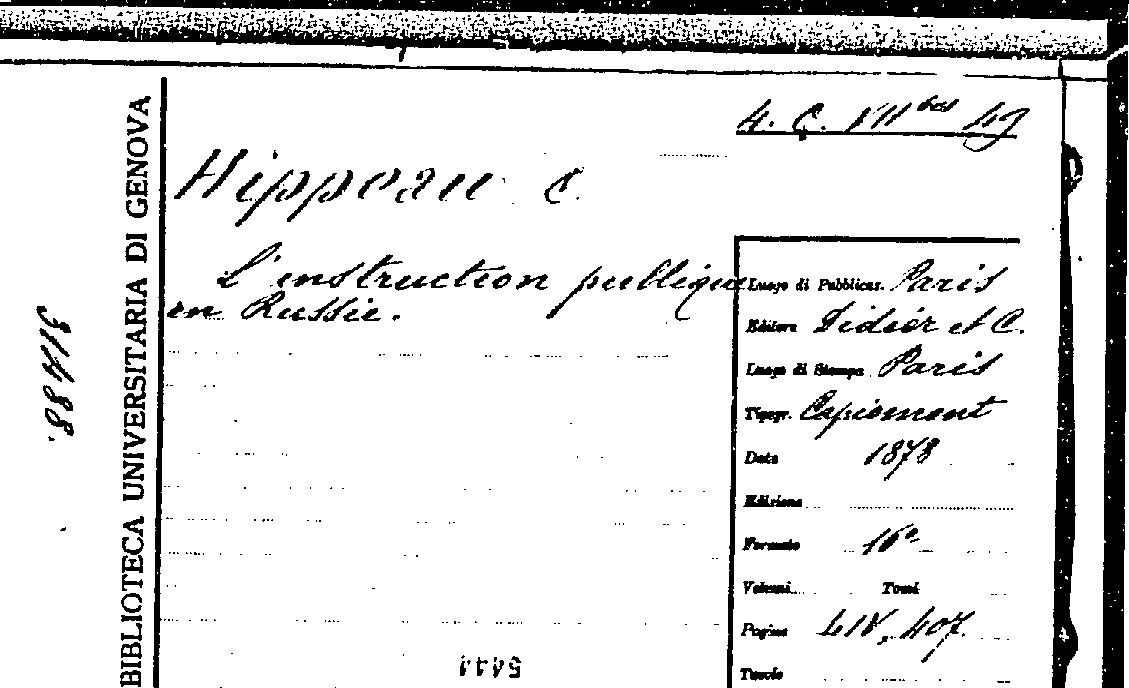 4. C. VII bis 49
Hippeau C.
L'instruction publique
en Russie.
BIBLIOTECA UNIVERSITARIA DI GENOVA
31488.
Luogo di Pubblicaz. Paris
Editore Didier et C.
Luogo di Stampa Paris
Tipogr. Capiomont
Data 1878
Edizione
Formato 16°
Volumi Tomi
Pagine LIV, 407.
Tavole